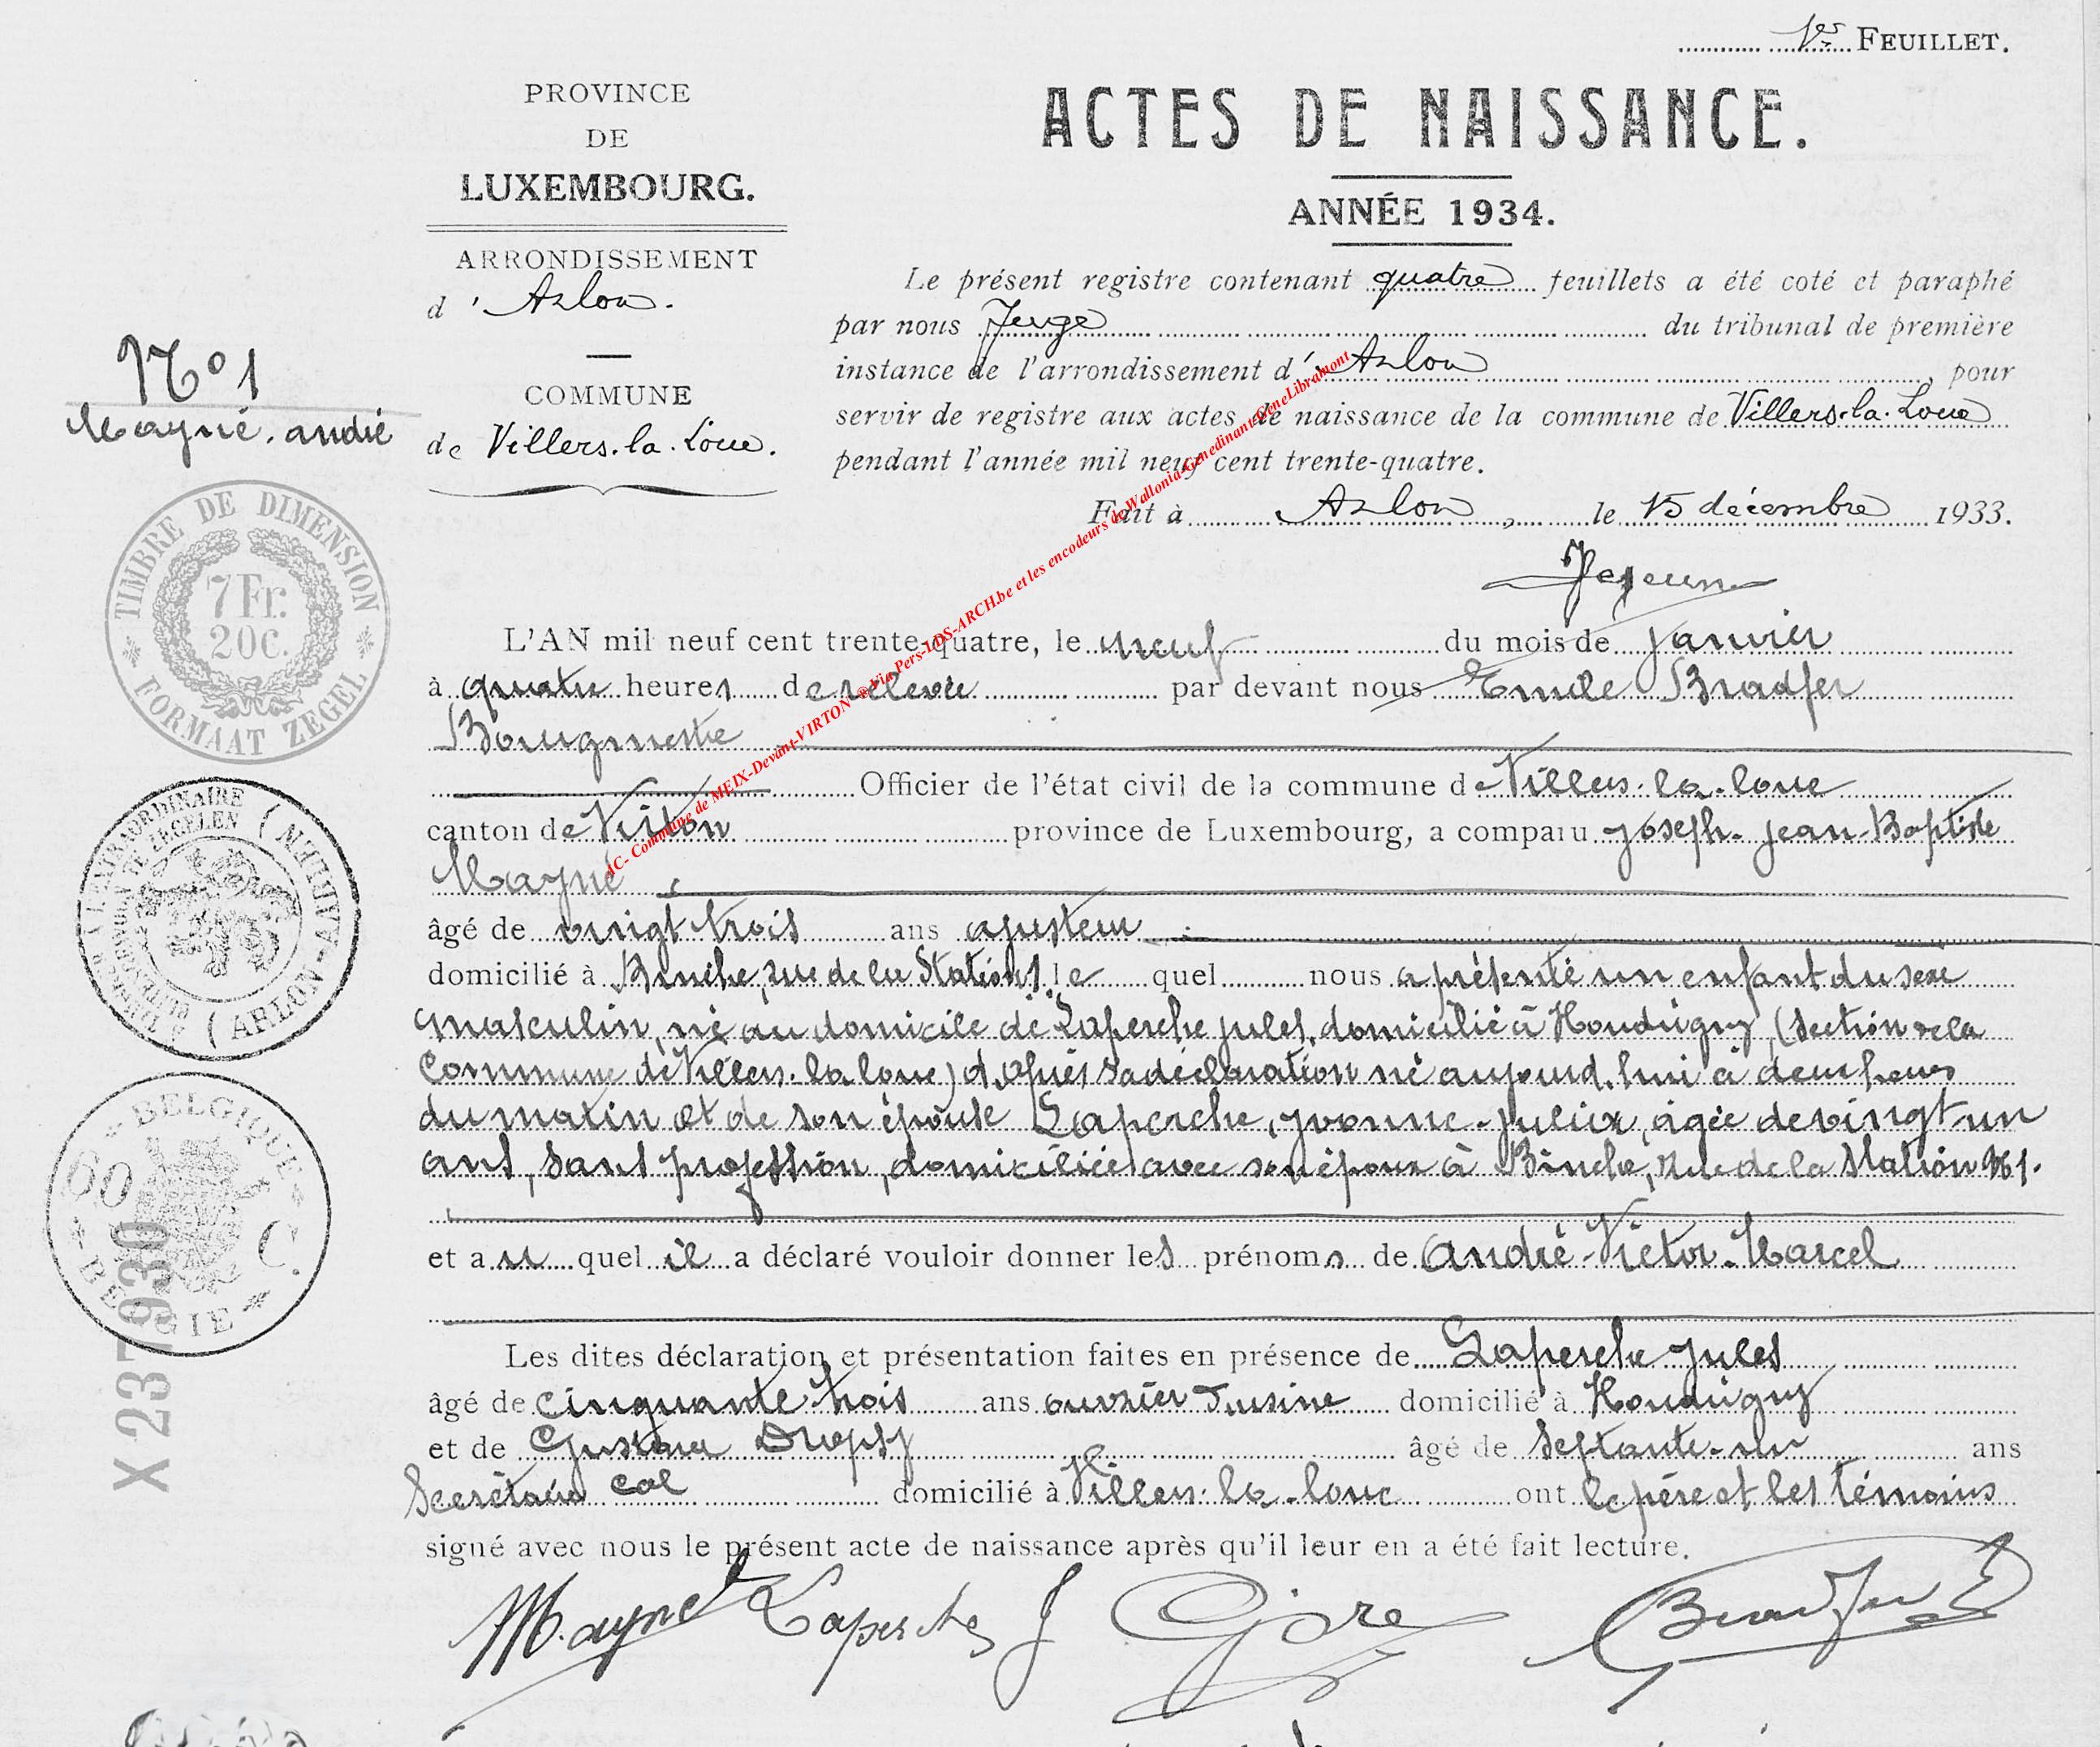 1er FEUILLET.
PROVINCE
DE
LUXEMBOURG.
ARRONDISSEMENT
d'Arlon.
COMMUNE
de Villers-la-Loue.
ACTES DE NAISSANCE.
ANNÉE 1934.
Le présent registre contenant quatre feuillets a été coté et paraphé
par nous Juge du tribunal de première
instance de l'arrondissement d'Arlon, pour
servir de registre aux actes de naissance de la commune de Villers-la-Loue
pendant l'année mil neuf cent trente-quatre.
Fait à Arlon, le 15 décembre 1933.
N° 1
Mayné, andré
TIMBRE DE DIMENSION
7 Fr.
20 c.
FORMAAT ZEGEL
(ARLON-AARLEN)
BELGIQUE
60 C.
BELGIE
X 237930
AC- Commune de MEIX-Devant-VIRTON ® via Pers-LDS-ARCH.be et les encodeurs de Wallonia-Genedinant-GeneLibramont
L'AN mil neuf cent trente-quatre, le neuf du mois de janvier
à quatre heures de relevée par devant nous Emile Bradfer
Bourgmestre
Officier de l'état civil de la commune de Villers-la-loue
canton de Virton province de Luxembourg, a comparu Joseph-Jean-Baptiste
Mayné
âgé de vingt trois ans ajusteur
domicilié à Binche, rue de la Station 1 lequel nous a présenté un enfant du sexe
masculin, né au domicile de Laperche Jules, domicilié à Houdrigny, (section de la
Commune de Villers-la-loue) d'après sa déclaration né aujourd'hui à deux heures
du matin et de son épouse Laperche, Yvonne-Julia, âgée de vingt un
ans, sans profession, domiciliée avec son époux à Binche, rue de la Station N° 1.
et auquel il a déclaré vouloir donner les prénoms de André-Victor-Marcel
Les dites déclaration et présentation faites en présence de Laperche Jules
âgé de cinquante trois ans ouvrier d'usine domicilié à Houdrigny
et de Gustave âgé de septante-un ans
Secrétaire col domicilié à Villers-la-loue ont le père et les témoins
signé avec nous le présent acte de naissance après qu'il leur en a été fait lecture.
Mayné Laperche J Bradfer